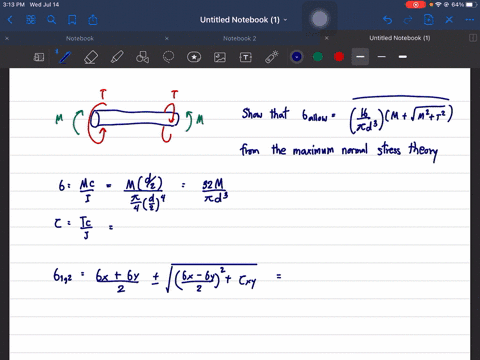 3:13 PM Wed Jul 14
64%
Untitled Notebook (1)
Notebook
Notebook 2
Untitled Notebook (1)
T T
M M
Show that σallow = (16/πd³)(M + √(M² + T²))
from the maximum normal stress theory
σ = Mc/I = M(d/2)/(π/4 (d/2)⁴) = 32M/πd³
τ = Tc/J =
σ1,2 = (σx + σy)/2 ± √(((σx - σy)/2)² + τxy) =